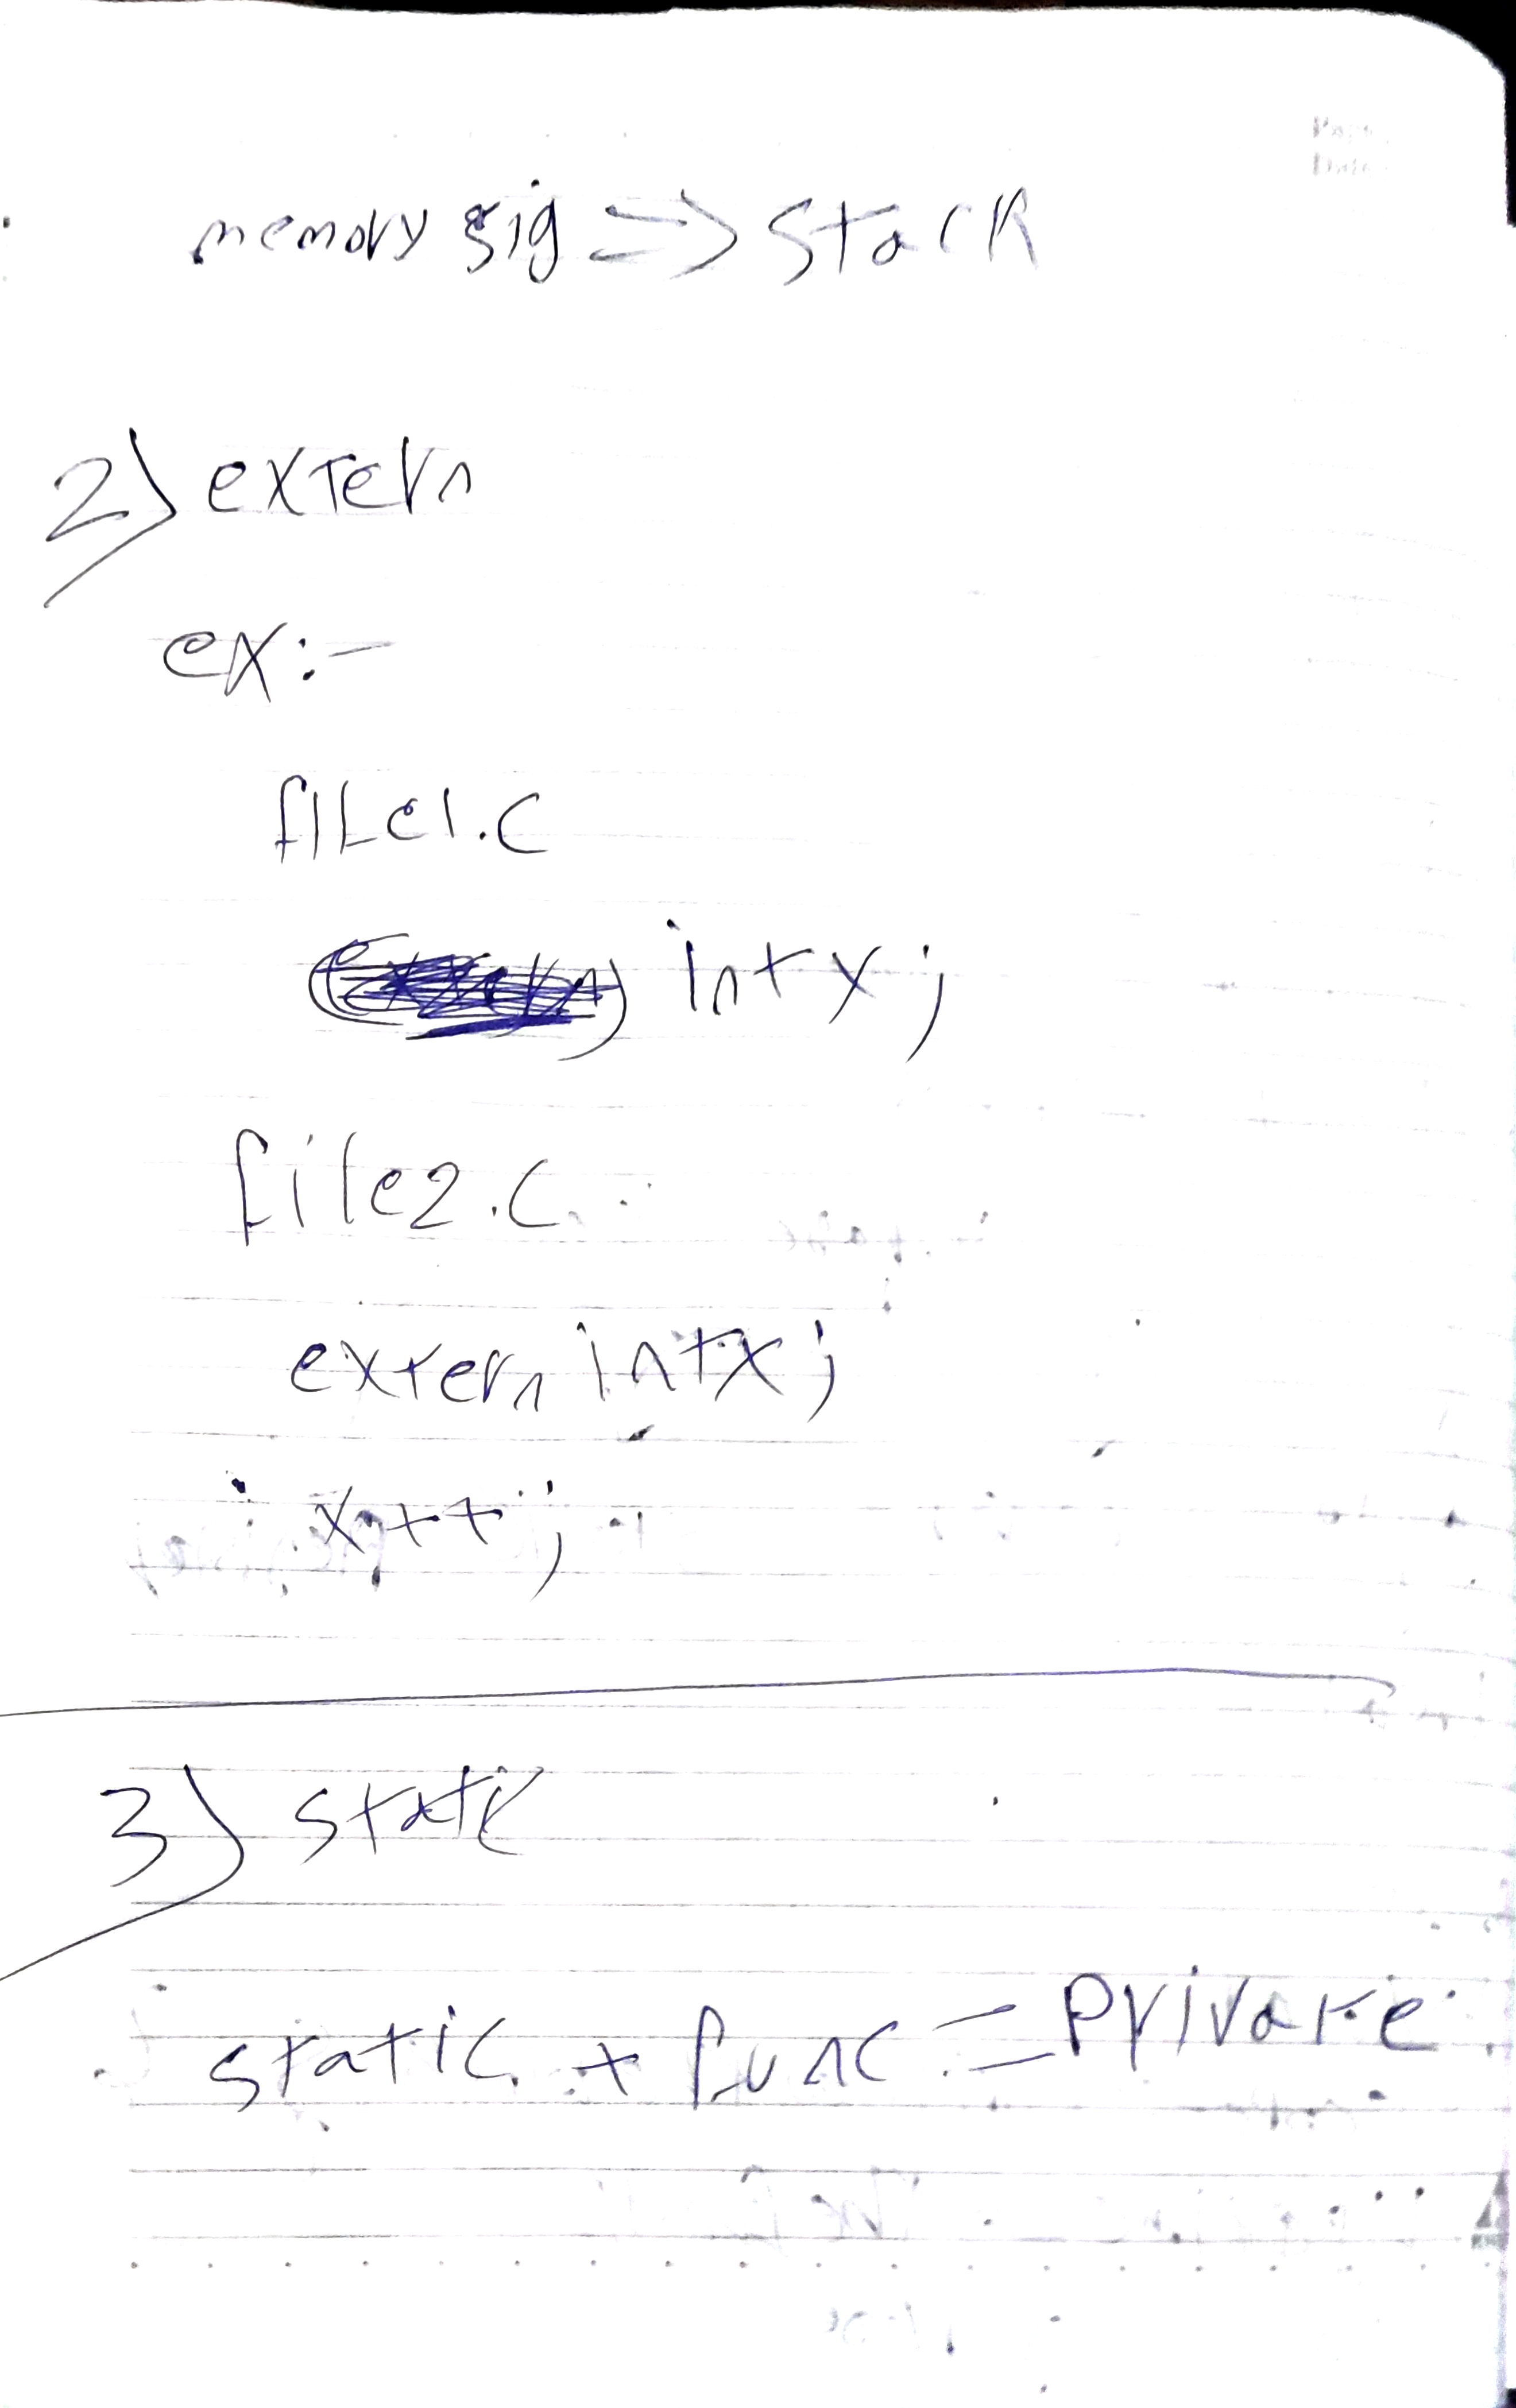 memory sig => stack
2) extern
ex:-
file1.c
int x;
file2.c
extern int x;
x++;
3) static
static + func = private